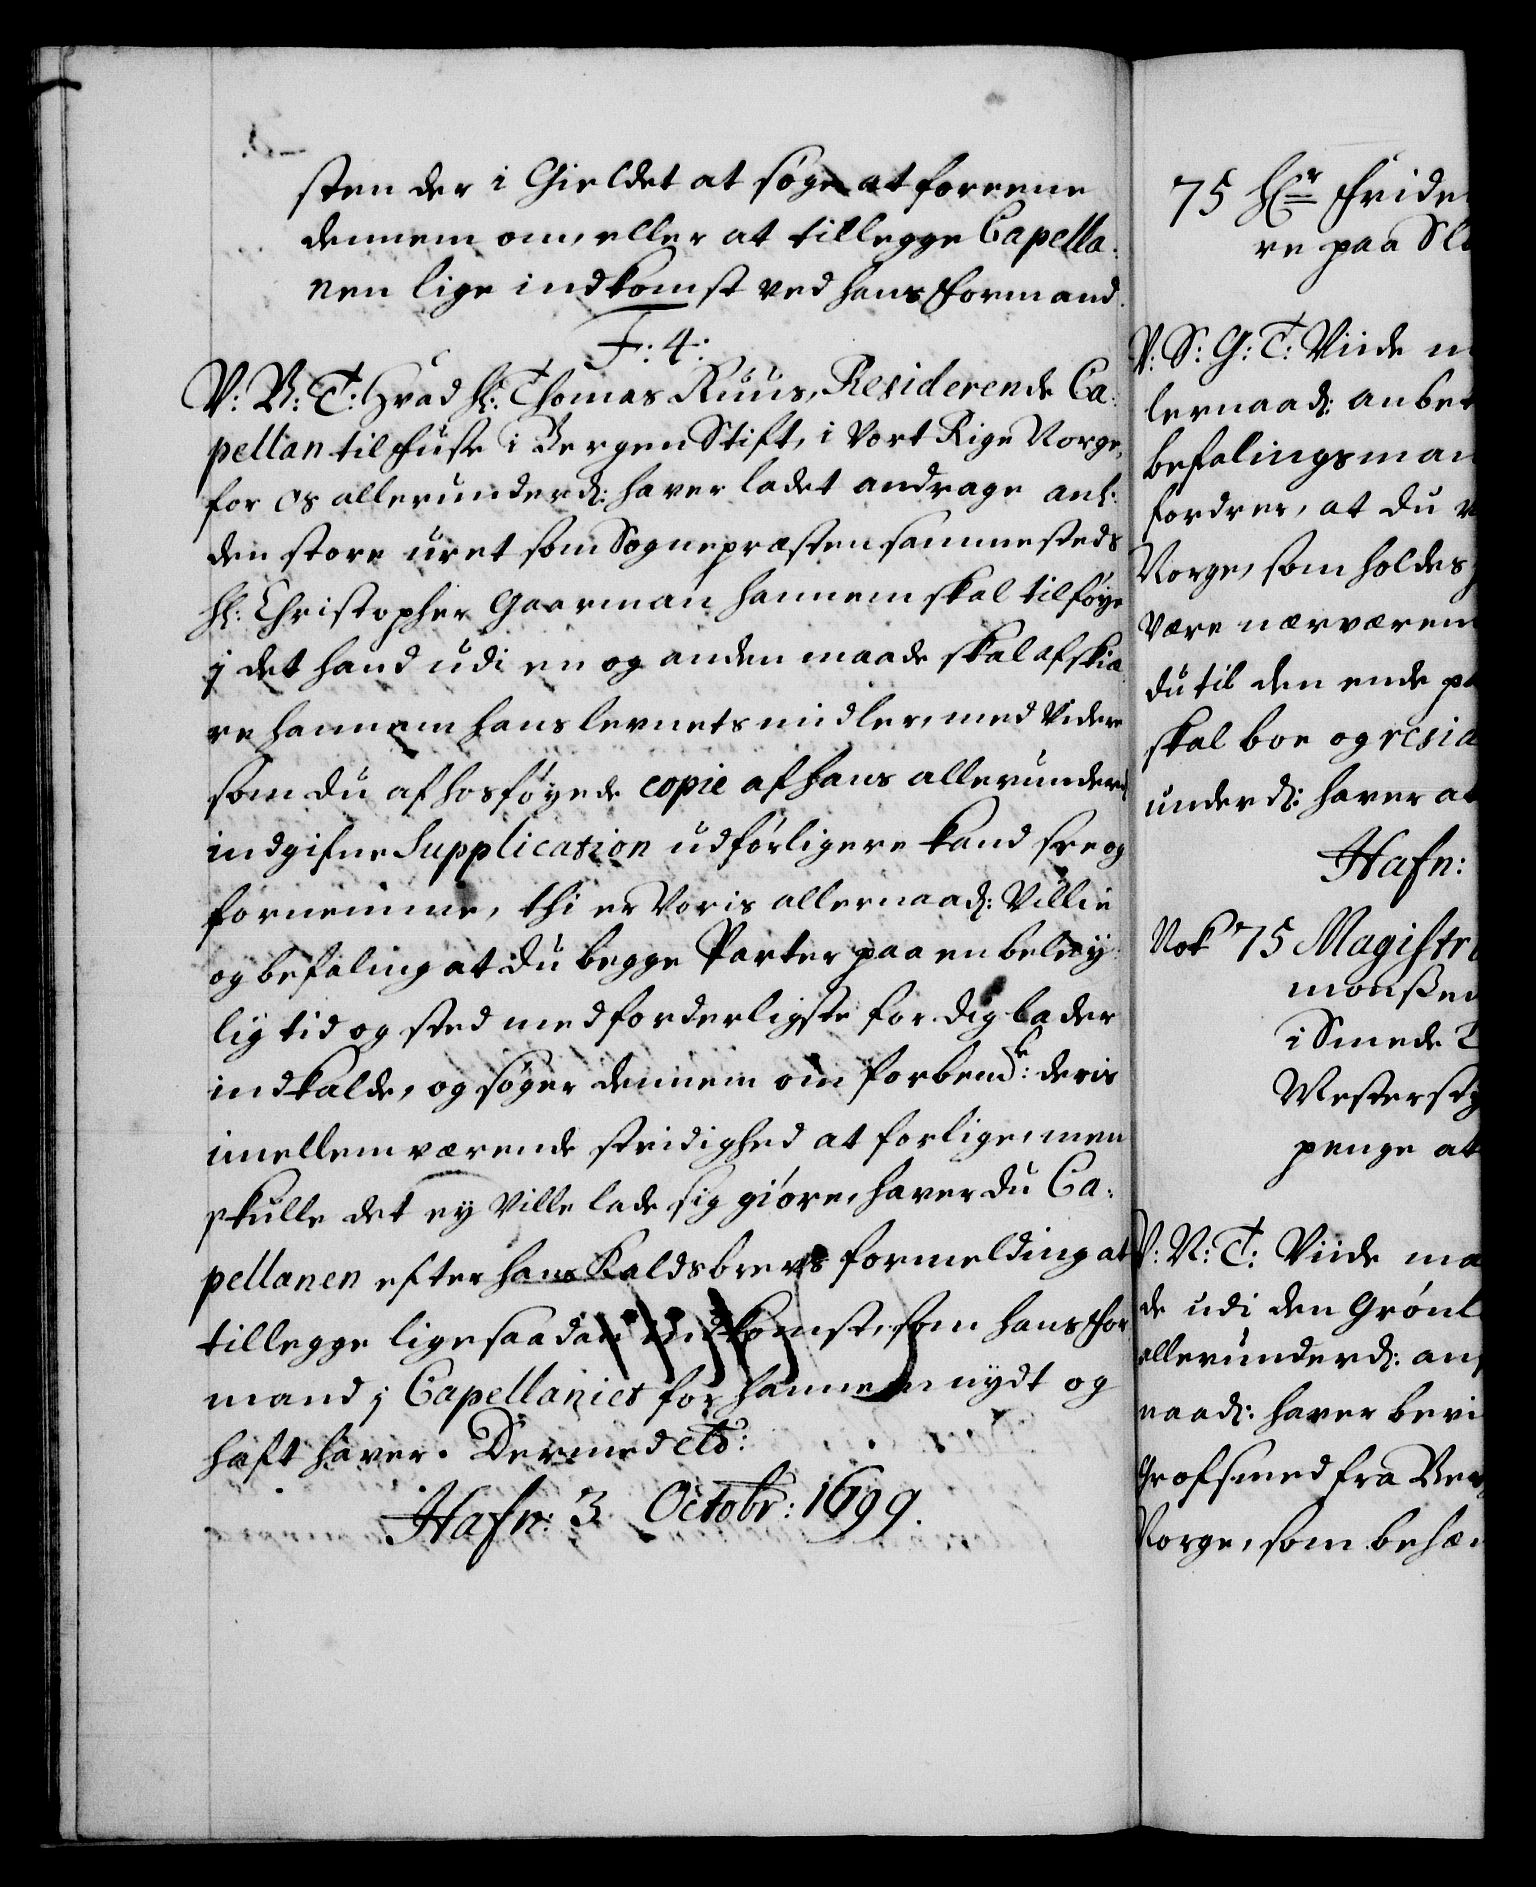 sten der i Gieldet at søge at foreene
dennem om, eller at tillegge Capella:
nen lige indkomst ved hans Formand.
F: 4:
V: V: T: Hvad Hr: Thomas Ruus, Residerende Ca:
pellan til Fuse i Bergen Stift, i Vort Rige Norge,
for os allerunderd: haver ladet andrage anl:
den store uret som Sognepræsten sammesteds
Hr: Christopher Gaarman hannem skal tilføye
j det hand udi en og anden maade skal afskiæ
re hannem hans levnets midler, med videre
som du af hosføyede copie af hans allerunderd:
indgifne Supplication udførligere kand see og
fornemme, thi er Voris allernaad: Villie
og befaling at du begge Parter paa en beley:
lig tid og sted med forderligste for dig lader
indkalde, og søger dennem om forbemdte: deris
imellem værende stridighed at forlige, men
skulle det ey ville lade sig giøre, haver du Ca:
pellanen efter hans Kaldsbrevs formelding at
tillegge lige saadan indkomst, som hans for
mand j Capellaniet for hannem nydt og
haft haver. Dermed etc:
Hafn: 3 Octobr: 1699.
75 Hr Fride
re paa Sl
V: S: G: T: Viide m
lernaad: anbet
befalingsman
fordrer, at du
Norge, som holdes
være nærværen
du til den ende p
skal boe og resid
underd: haver at
Hafn:
Nok 75 Magistr
monssen
i Smede
Mesterst
penge at
V: V: T: Viide ma
de udi den Grønl
allerunderd: an
naad: haver bevi
Grofsmed fra Ber
Norge, som behæ